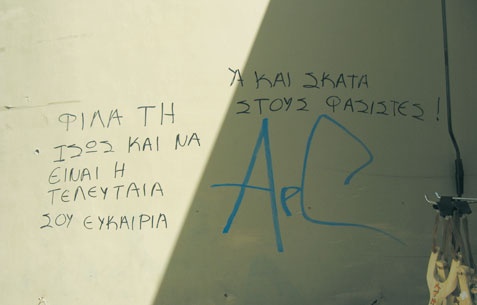 ΦΙΛΑ ΤΗ
ΙΣΩΣ ΚΑΙ ΝΑ
ΕΙΝΑΙ Η
ΤΕΛΕΥΤΑΙΑ
ΣΟΥ ΕΥΚΑΙΡΙΑ
Ά ΚΑΙ ΣΚΑΤΑ
ΣΤΟΥΣ ΦΑΣΙΣΤΕΣ!
ΑεC